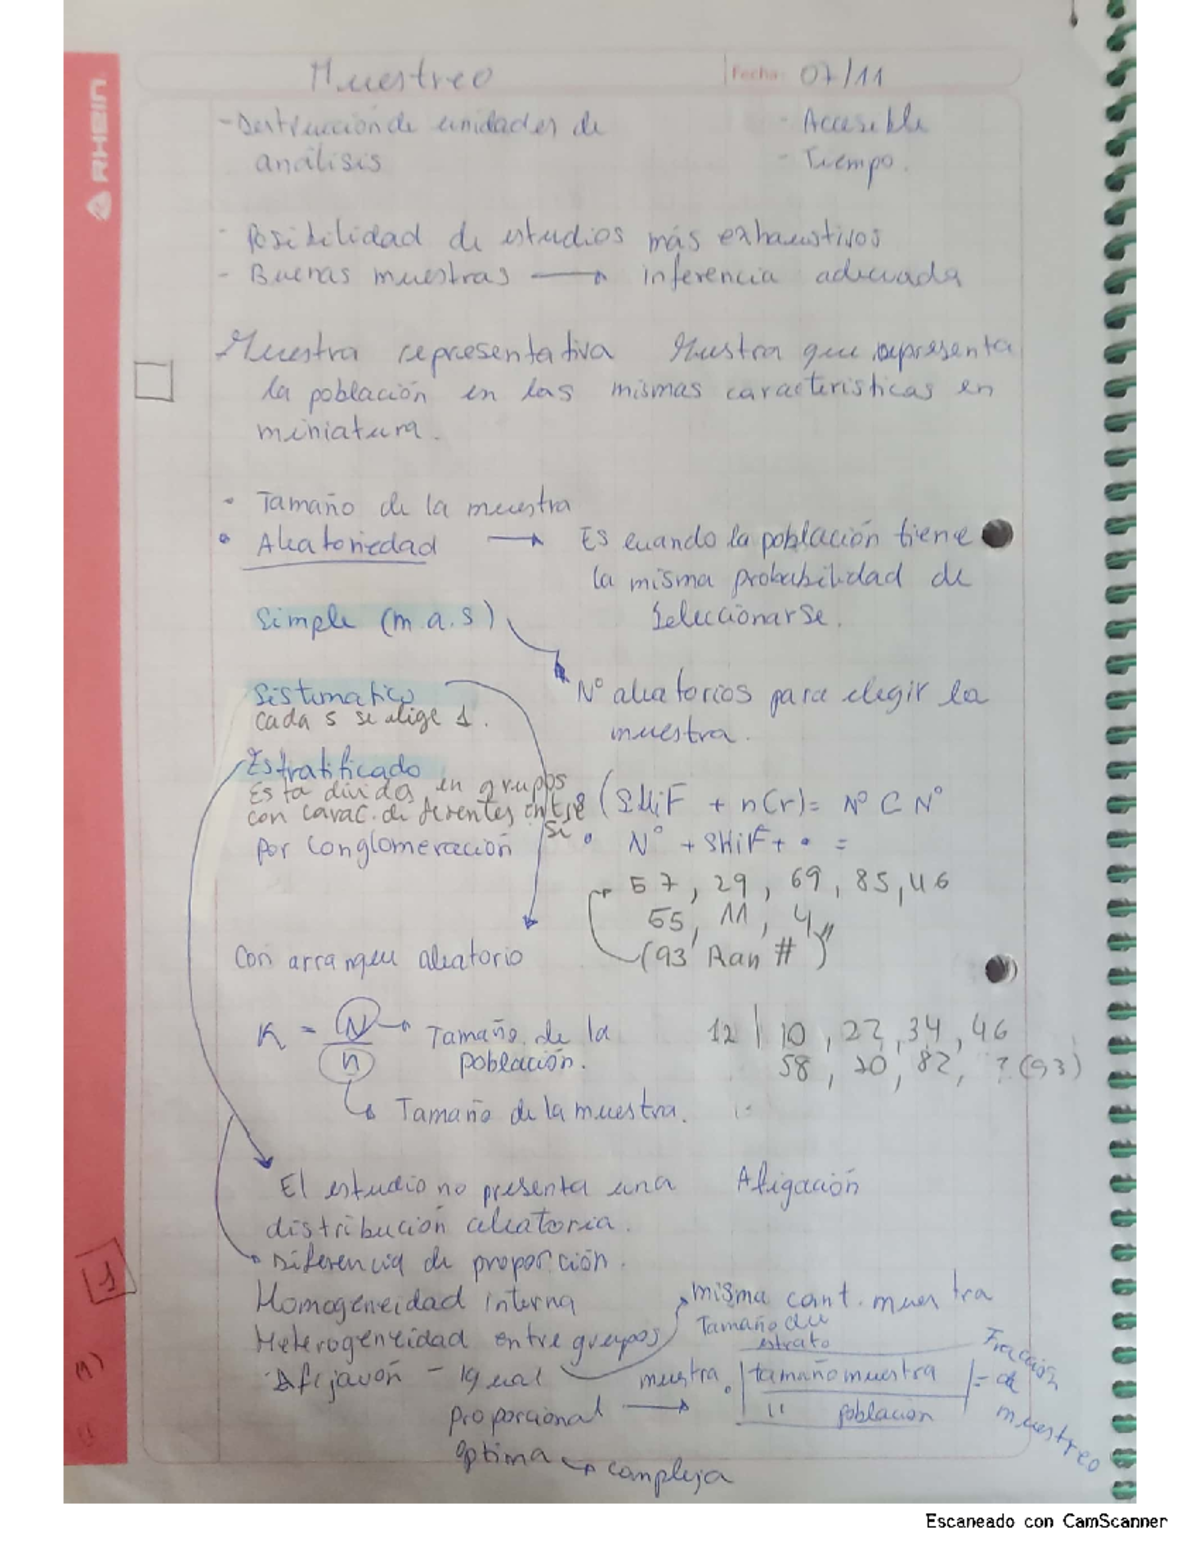 RHEIN
Muestreo
Fecha: 07/11
- Destrucción de unidades de
análisis
- Accesible
- Tiempo.
- Posibilidad de estudios más exhaustivos
- Buenas muestras → inferencia adecuada
Muestra representativa Muestra que representa
la población en las mismas caracteristicas en
miniatura.
- Tamaño de la muestra
• Aleatoriedad → Es cuando la población tiene
la misma probabilidad de
Seleccionarse.
Simple (m.a.s)
Nº aleatorios para elegir la
muestra.
Sistematico
cada 5 se elige 1.
Estratificado
Esta dividas en grupos
con carac. diferentes entre
si
Por conglomeración
(SHiF + n(r) = Nº C Nº
• Nº + SHiF + • =
57, 29, 69, 85, 46
55, 11, 4
(93 Ran #)
Con arranque aleatorio
K = N/n
Tamaño de la
población.
Tamaño de la muestra.
12 | 10, 22, 34, 46
58, 70, 82, ? (93)
El estudio no presenta una
distribución aleatoria.
Afigación
Diferencia de proporción.
Homogeneidad interna
Heterogeneidad entre grupos
misma cant. muestra
Afijación - Igual
proporcional →
optima → compleja
Tamaño du
estrato
muestra • | tamaño muestra
" población
| = Fracción
de
muestreo
1
Escaneado con CamScanner